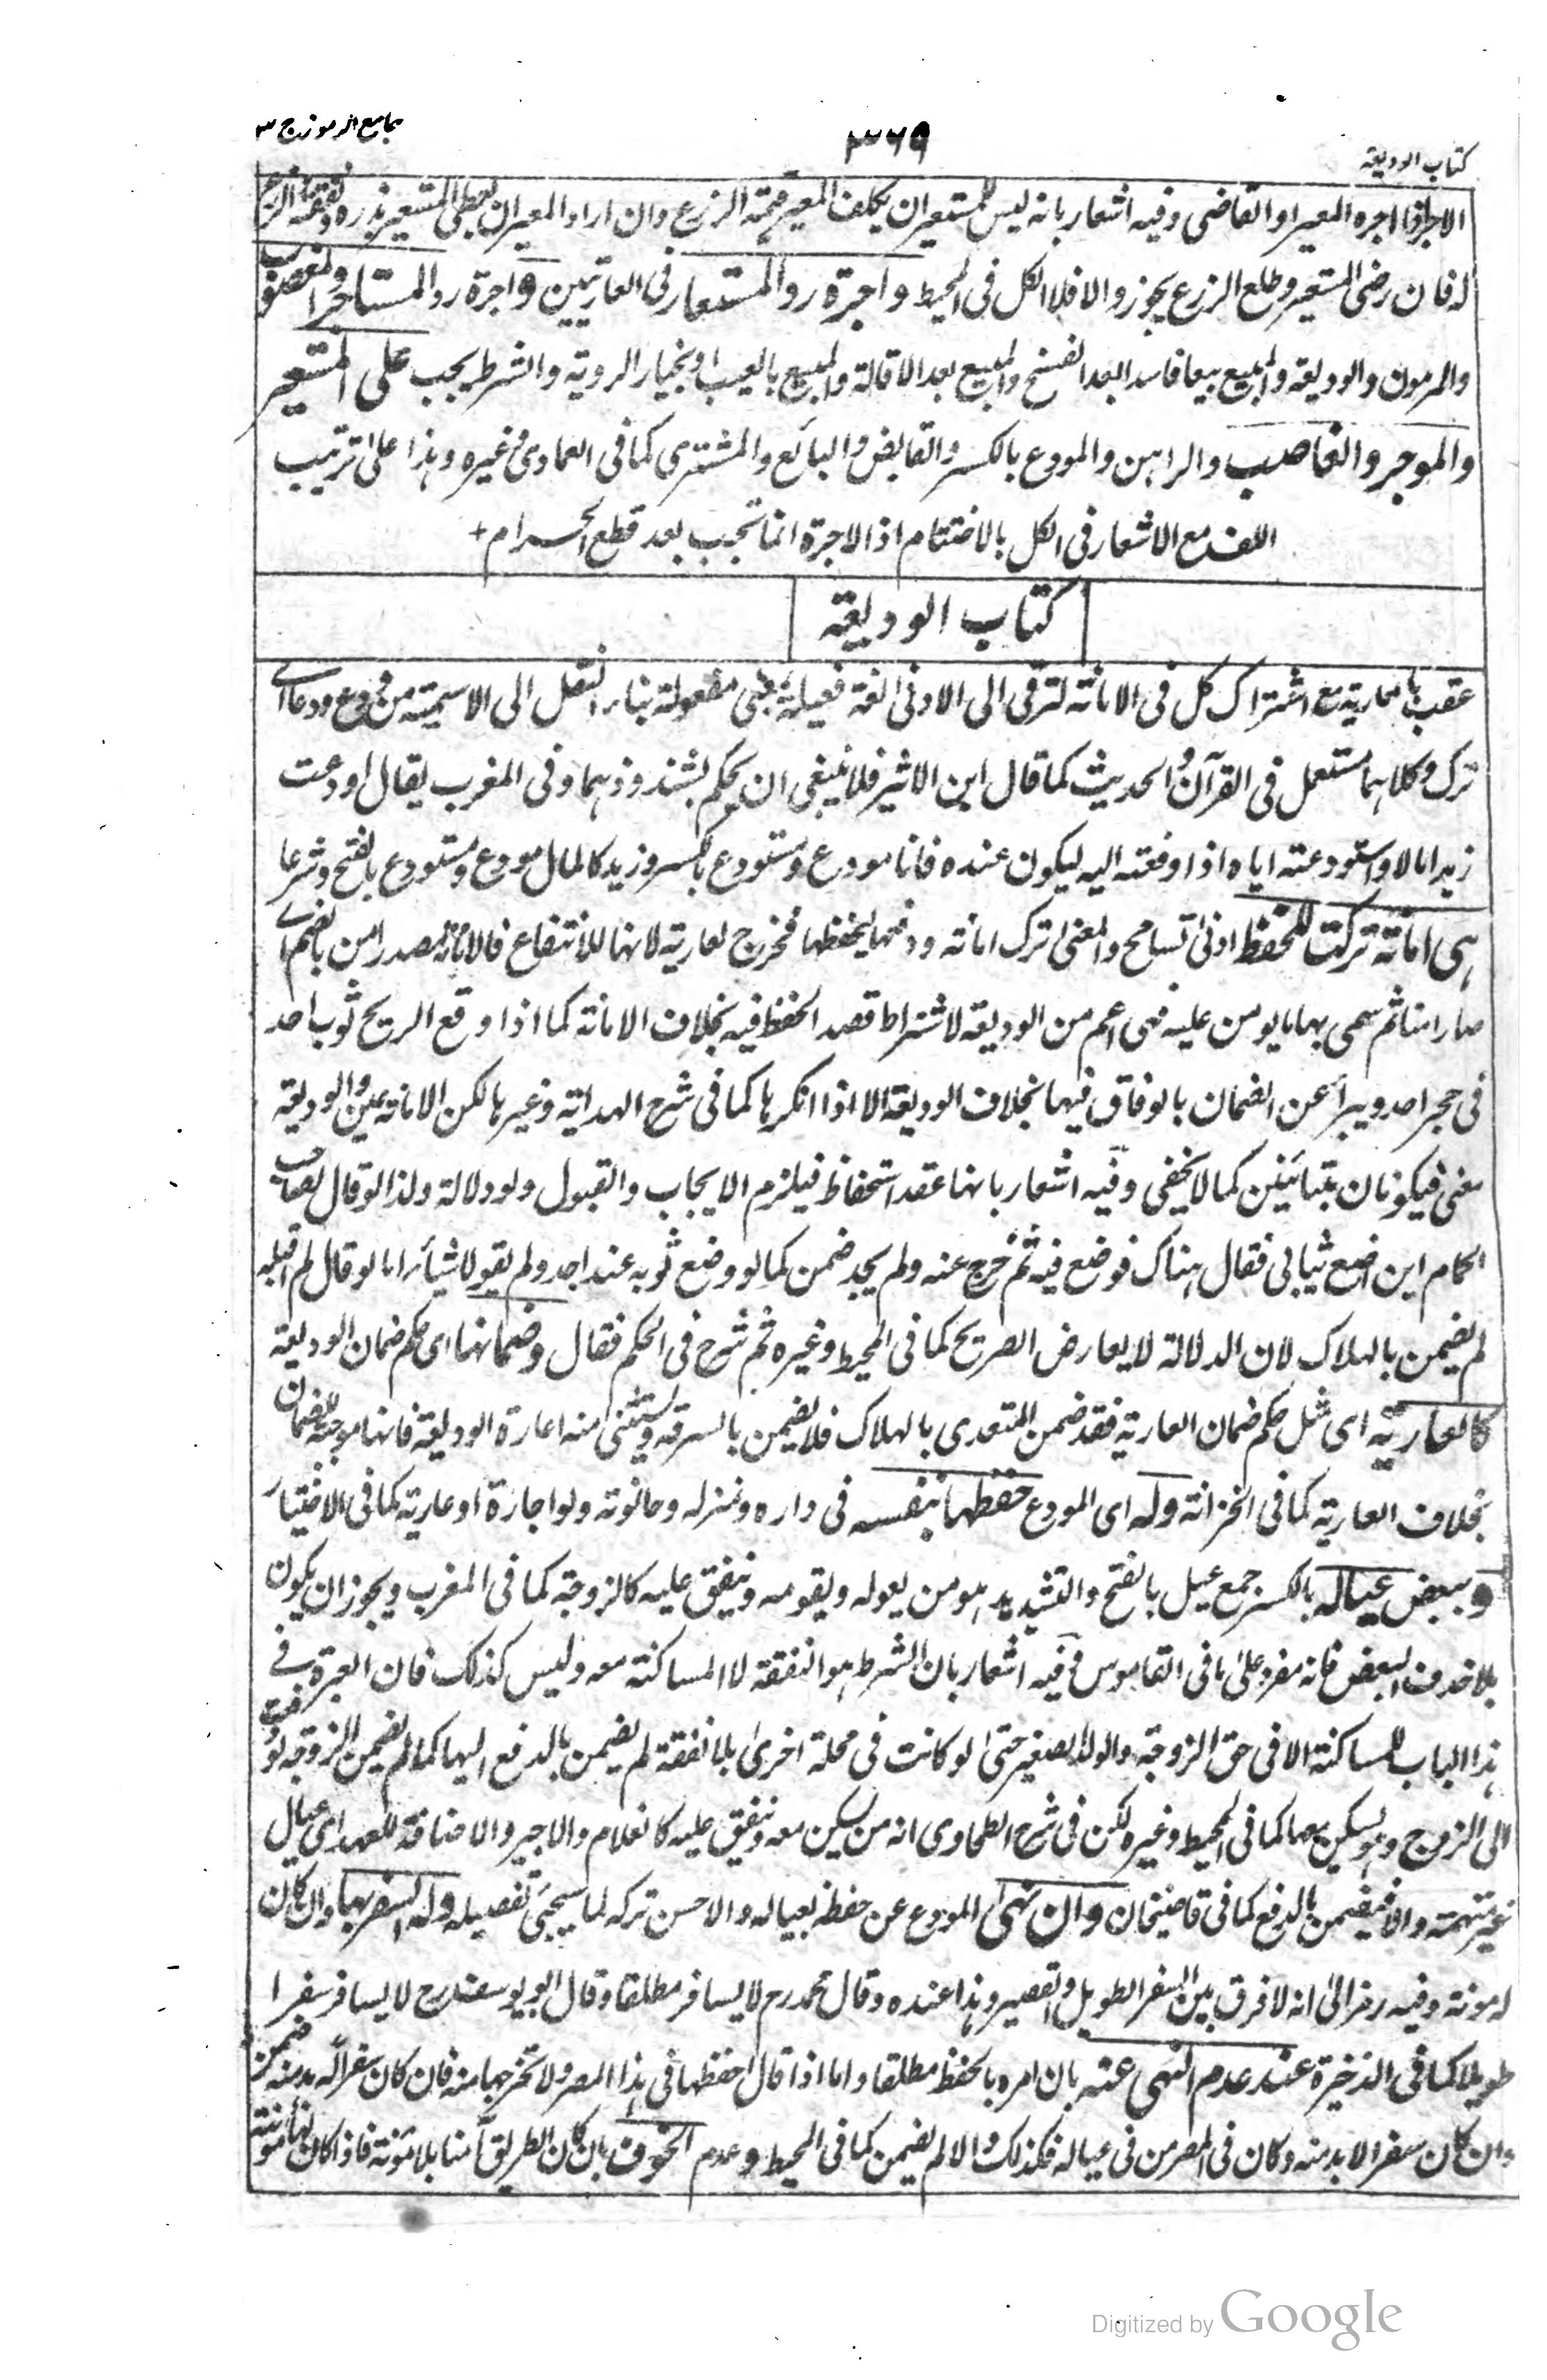 كتاب الوديعة
٣٦٩
جامع الرموز ج ٣
الاجر اذا اجره المعير او القاضي وفيه اشعار بانه ليس للمستعير ان يكلف المعير قيمة الزرع وان اراد المعير ان يعطي المستعير بذره ونفقة الزرع
له فان رضى المستعير وطلع الزرع يجوز والا فلا الكل فى المحيط واجرة رد المستعار فى العاريتين واجرة رد المستاجر والمغصوب
والمرهون والوديعة والمبيع بيعا فاسدا بعد الفسخ والمبيع بعد الاقالة والمبيع بالعيب او بخيار الروية والشرط يجب على المستعير
والموجر والغاصب والراهن والمودع بالكسر والقابض والبائع والمشترى كما فى العمادى وغيره وهذا على ترتيب
اللف مع الاشعار فى الكل بالاختتام اذ الاجرة انما تجب بعد قطع الحرام +
كتاب الوديعة
عقب بالعارية مع اشتراك كل فى الامانة لترقى الى الادنى لغة فعيلة بمعنى مفعولة بتاء النقل الى الاسمية من ودع ودعا اى
ترك وكلاهما مستعمل فى القرآن والحديث كما قال ابن الاثير فلا ينبغى ان يحكم بشذوذهما وفى المغرب يقال اودعت
زيدا مالا واستودعته اياه اذا دفعته اليه ليكون عنده فانا مودع ومستودع بالكسر وزيد كالمال مودع ومستودع بالفتح وشرعا
هى امانة تركت للحفظ ادنى تسامح والمعنى ترك امانة ودفعها ليحفظها فخرج العارية لانها للانتفاع فالامانة مصدر امن بالضم اى
صار امنا ثم سمى بها ما يومن عليه فهى اعم من الوديعة لاشتراط قصد الحفظ فيه بخلاف الامانة كما اذا وقع الريح ثوب احد
فى حجر احد ويبرأ عن الضمان بالوفاق فيها بخلاف الوديعة الا اذا انكرها كما فى شرح الهداية وغيرها لكن الامانة عين والوديعة
معنى فيكونان متباينين كما لا يخفى وفيه اشعار بانها عقد استحفاظ فيلزم الايجاب والقبول ولو دلالة ولذا لو قال لصاحب
الحمام اين اضع ثيابى فقال هناك فوضع فيه ثم خرج عنه ولم يجد ضمن كما لو وضع ثوبه عند احد ولم يقولا شيأ اما لو قال لم اقبله
لم يضمن بالهلاك لان الدلالة لا يعارض الصريح كما فى المحيط وغيره ثم شرح فى الحكم فقال وضمانها اى حكم ضمان الوديعة
كالعارية اى مثل حكم ضمان العارية فقد ضمن المتعدى بالهلاك فلا يضمن بالسرقة ويستثنى منه اعارة الوديعة فانها موجبة للضمان
بخلاف العارية كما فى الخزانة وله اى المودع حفظها بنفسه فى داره ومنزله وحانوته ولو اجارة او عارية كما فى الاختيار
وببعض عياله بالكسر جمع عيل بالفتح والتشديد هو من يعوله ويقومه وينفق عليه كالزوجة كما فى المغرب ويجوز ان يكون
بلا حذف البعض فانه مفرد على ما فى القاموس وفيه اشعار بان الشرط هو النفقة لا المساكنة معه وليس كذلك فان العبرة فى
هذا الباب للمساكنة الا فى حق الزوجة والولد الصغير حتى لو كانت فى محلة اخرى بلا نفقة لم يضمن بالدفع اليها كما لم يضمن الزوجة لو دفعت
الى الزوج وهو يسكن معها كما فى المحيط وغيره لكن فى شرح الطحاوى انه من يسكن معه وينفق عليه كالغلام والاجير والاضافة للعهد اى عيال
غير متهمة والا فيضمن بالدفع كما فى قاضيخان وان نهى المودع عن حفظه بعياله والاحسن تركه لما سيجئ تفصيله وله السفر بها وان كان
له مونة وفيه رمز الى انه لا فرق بين السفر الطويل والقصير وهذا عنده وقال محمد رح لا يسافر مطلقا وقال ابو يوسف رح لا يسافر سفرا
طويلا كما فى الذخيرة عند عدم النهى عنه بان امره بالحفظ مطلقا واما اذا قال احفظها فى هذا المصر ولا تخرجها منه فان كان سفرا له بد منه ضمن
وان كان سفرا لا بد منه وكان فى المصر من فى عياله فكذلك والا لم يضمن كما فى المحيط وعدم الخوف بان كان الطريق آمنا بلا مئونة فاذا كان لها مونة
Digitized by Google